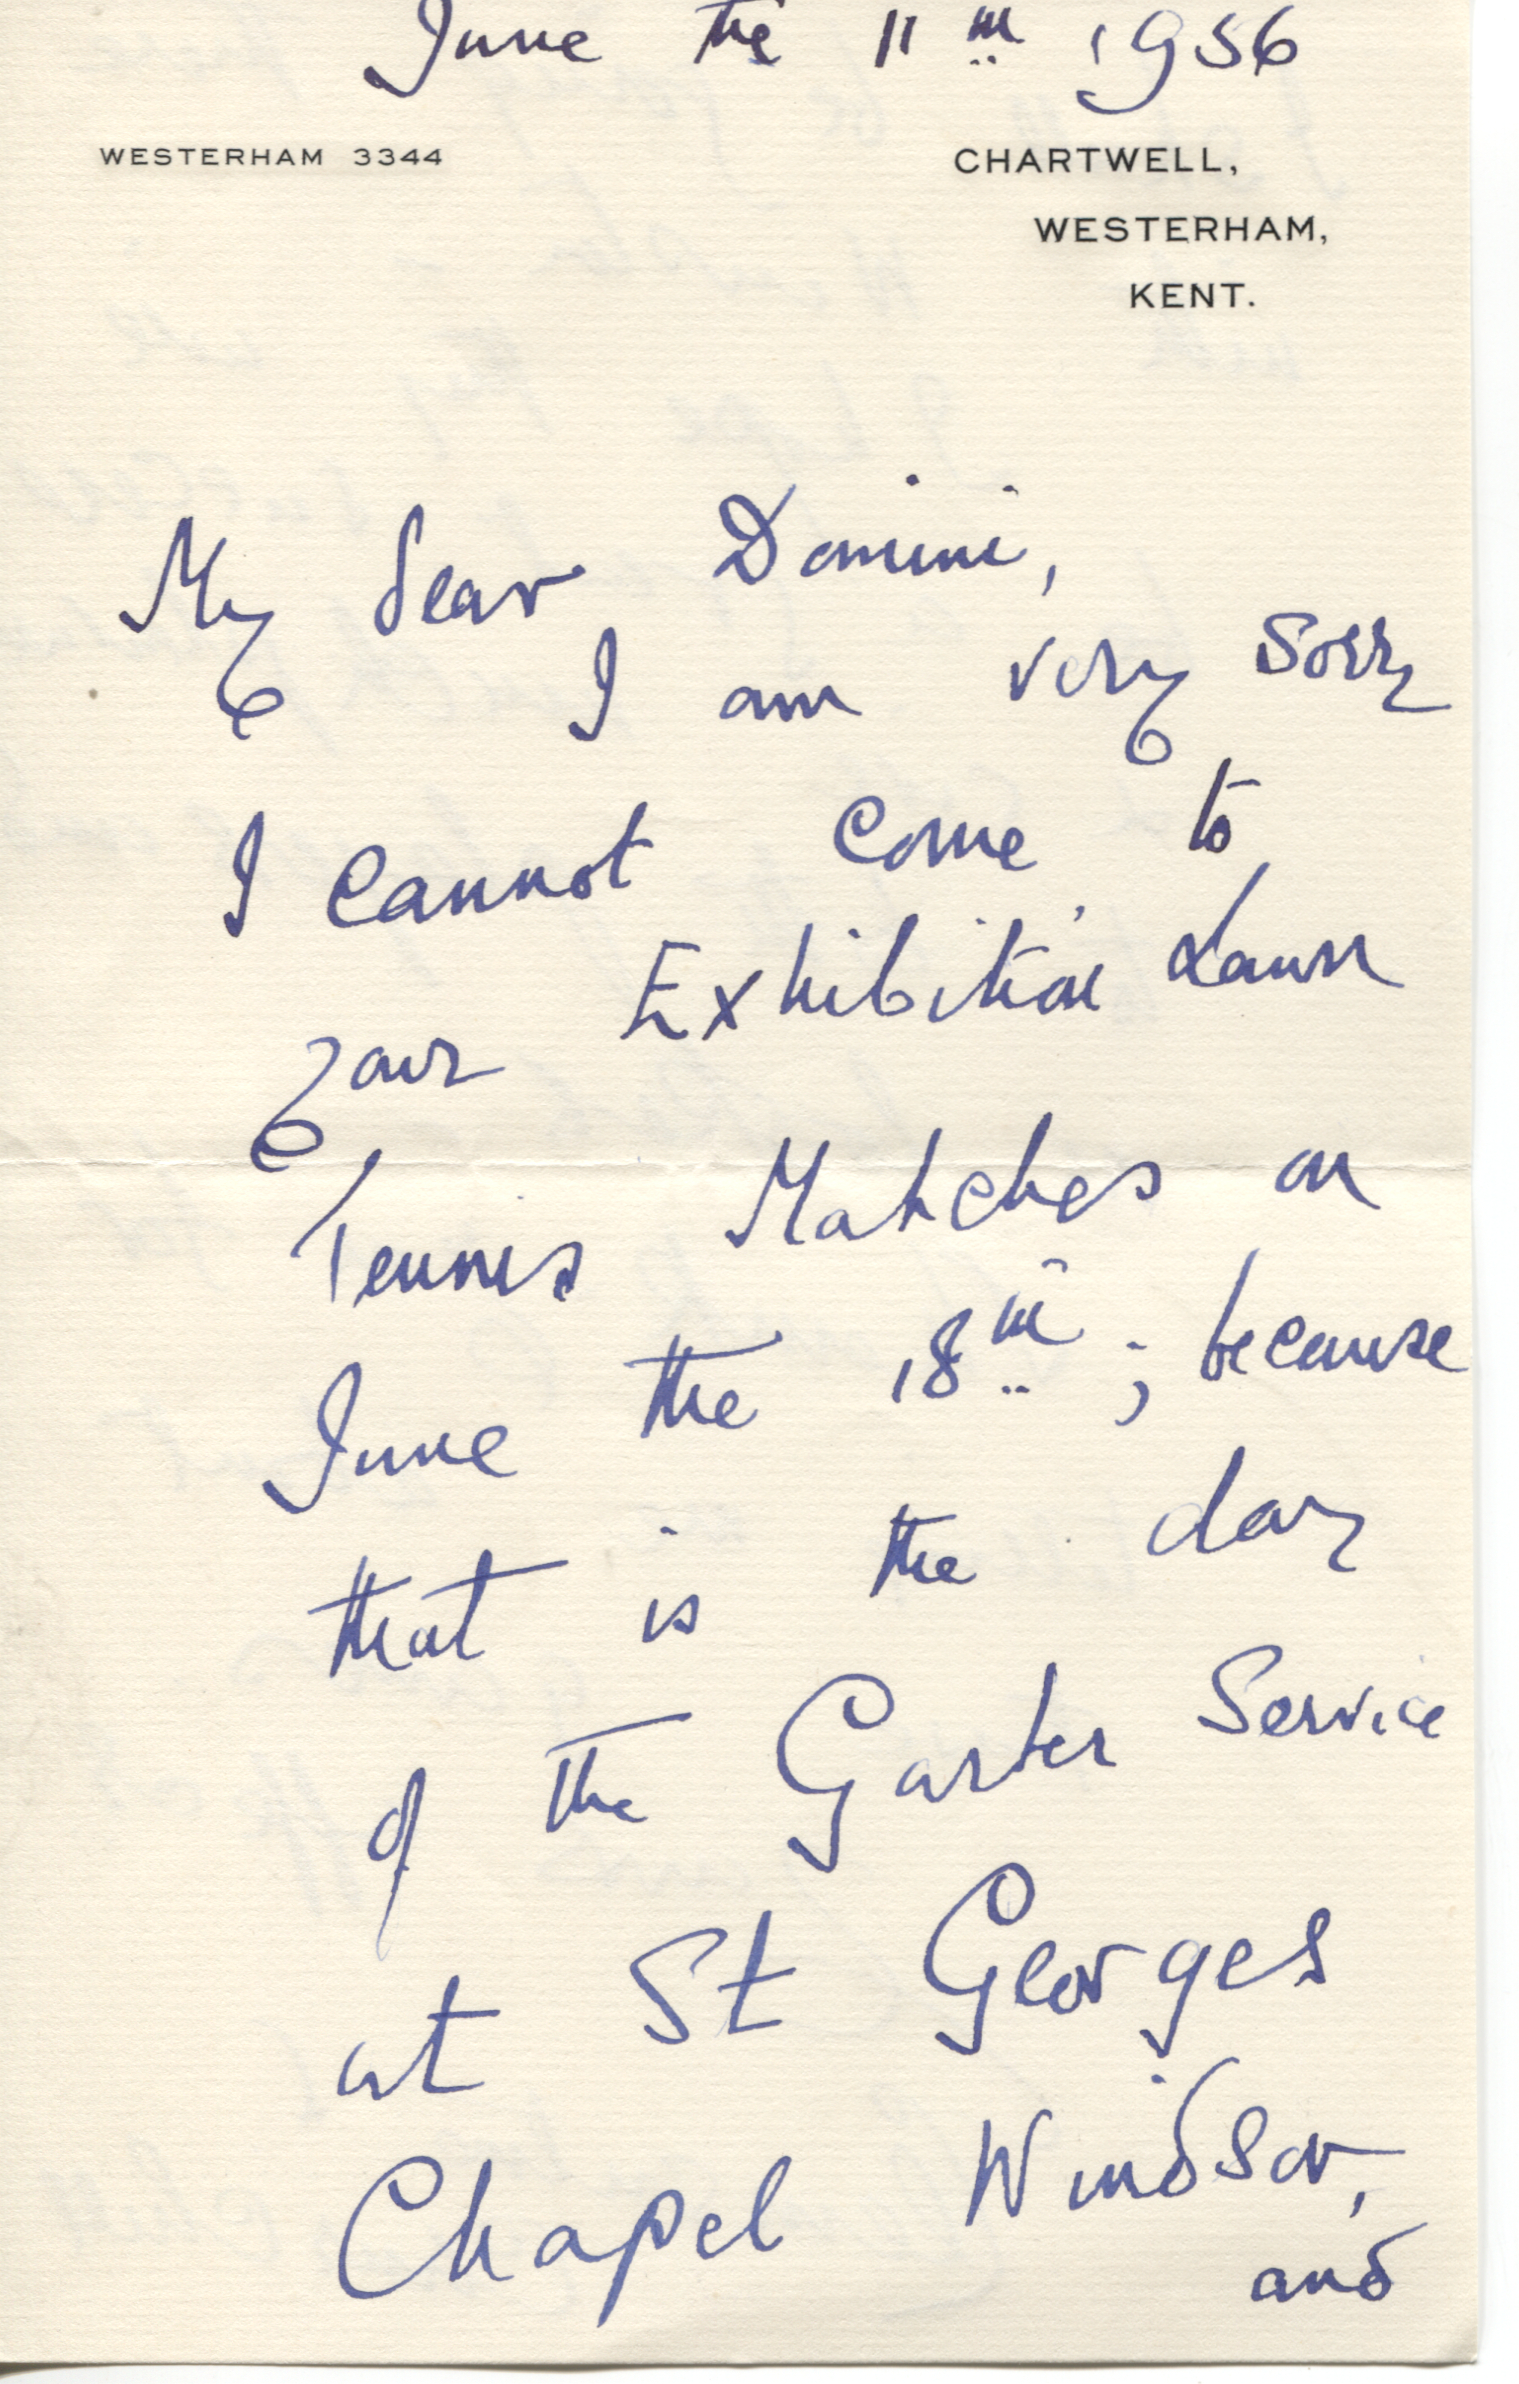 June the 11th 1956
WESTERHAM 3344
CHARTWELL,
WESTERHAM,
KENT.
My dear Domini,
I am very sorry
I cannot come to
your Exhibition Lawn
Tennis Matches on
June the 18th; because
that is the day
of the Garter Service
at St Georges
Chapel Windsor,
and